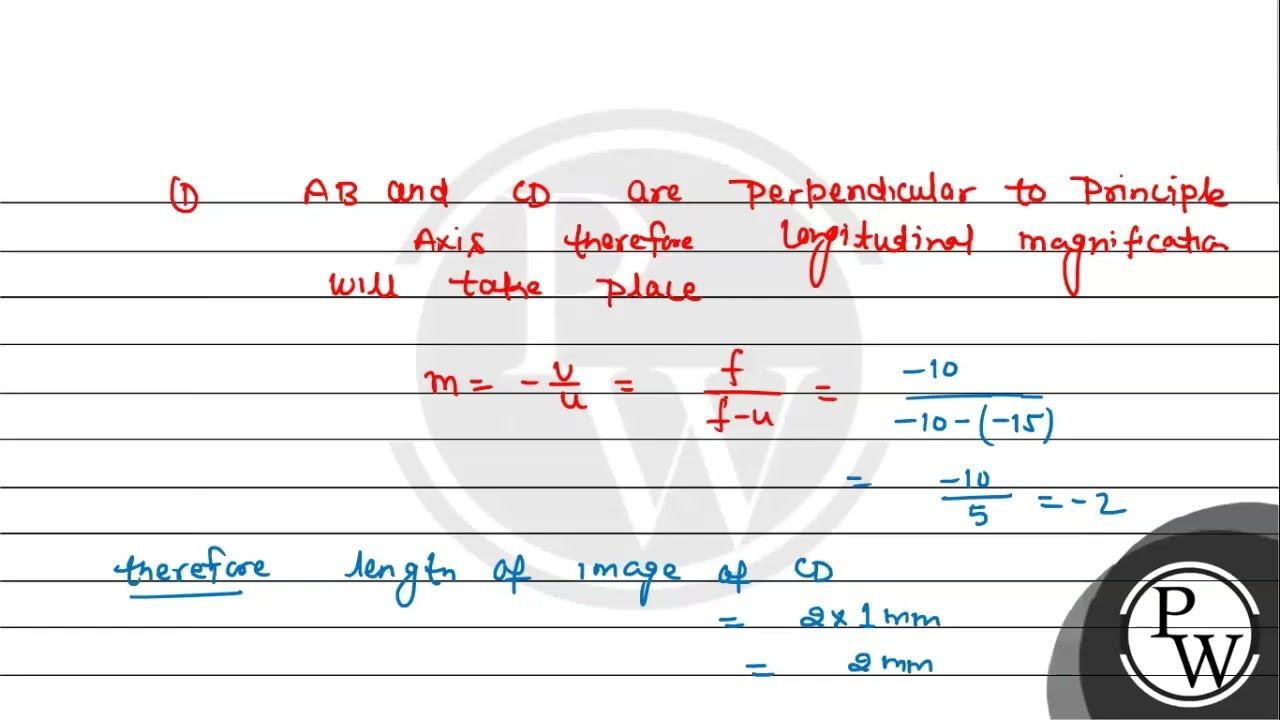 ① AB and CD are Perpendicular to Principle
Axis therefore longitudinal magnification
will take place
m = -v/u = f/(f-u) = -10/(-10-(-15))
= -10/5 = -2
therefore length of image of CD
= 2 x 1 mm
= 2 mm
PW
PW